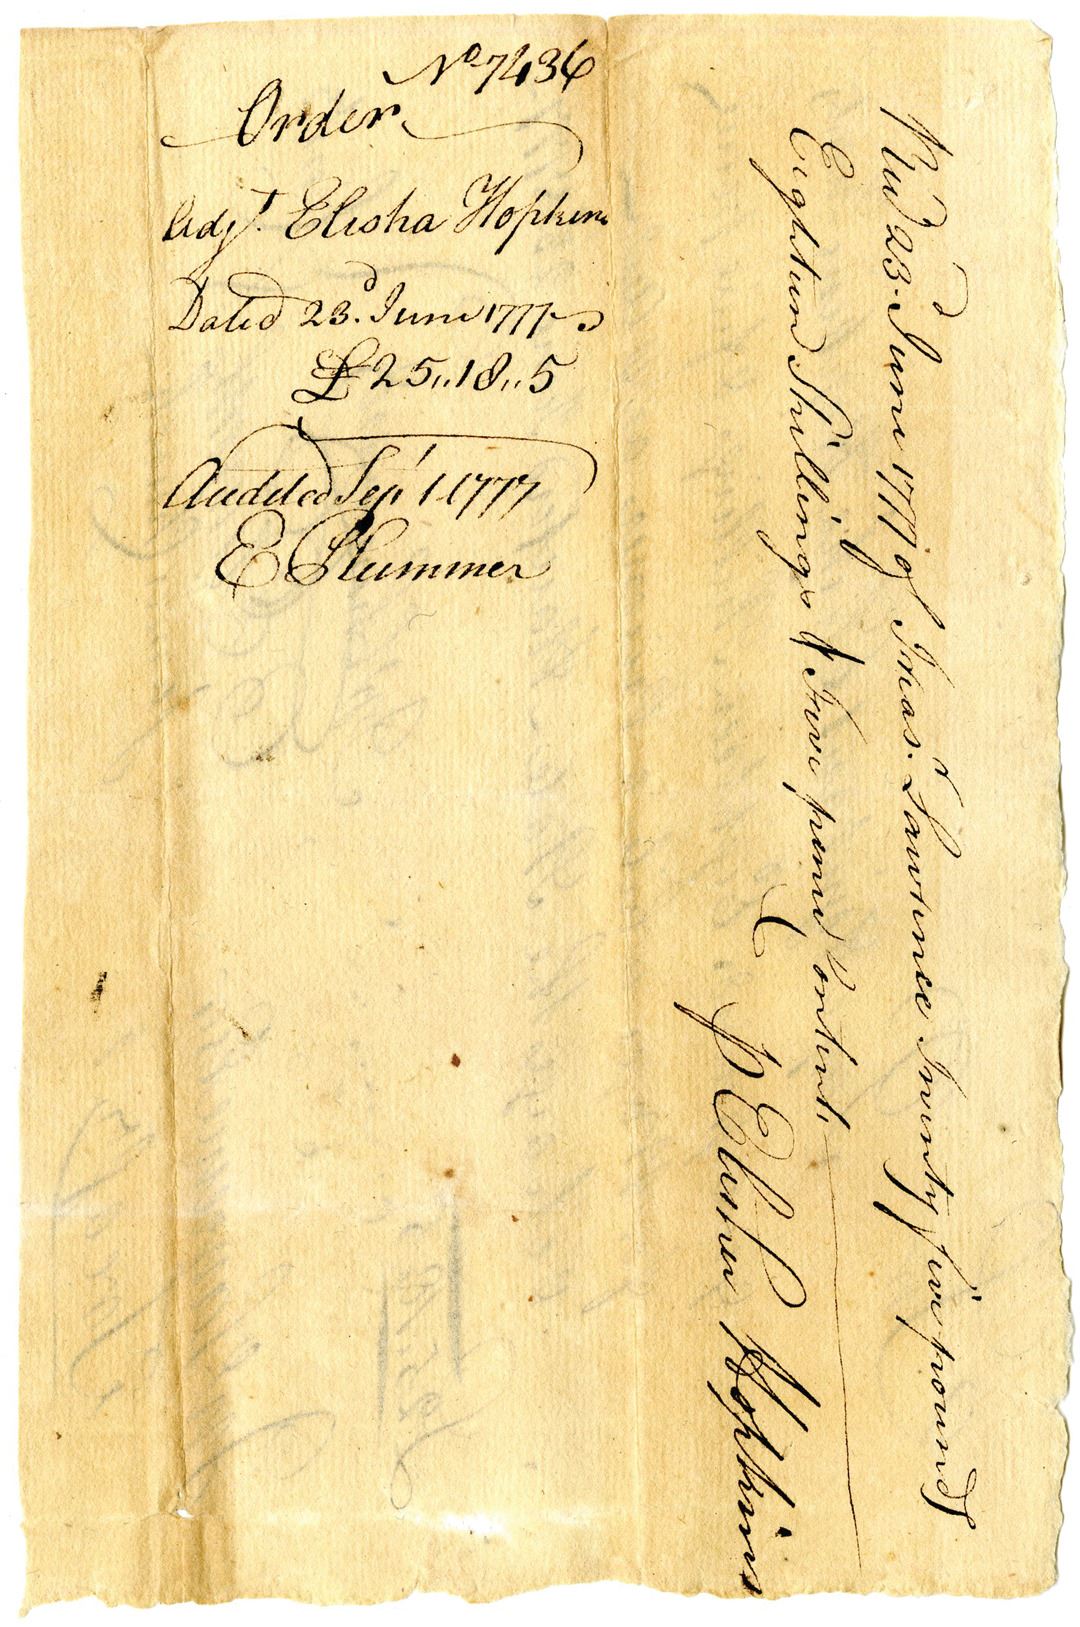 No 7436
Order
Adjt. Elisha Hopkins
Dated 23d. June 1777
£25,,18,,5
Audited Sepr 1 1777
E Plummer
Recd 23. June 1777 of Treasr. Lawrence Twenty five pounds
Eighteen Shillings & Five pence Content.
P Elisher Hopkins